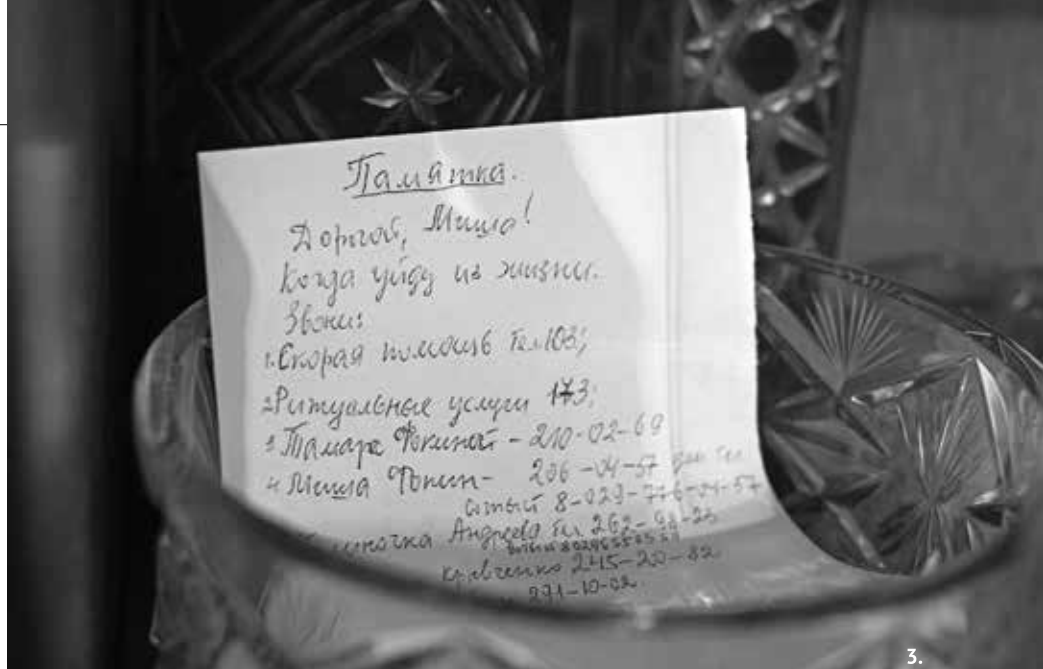 Памятка.
Дорогой, Миша!
Когда уйду из жизни.
Звони:
1. Скорая помощь тел 103;
2 Ритуальные услуги 173;
3 Тамаре Фокиной - 210-02-69
4 Миша Фокин - 206-04-57 дом тел
сотый 8-029-776-04-57
Андреева тел. 262-
Кравченко 245-20-82
291-10-02.
3.